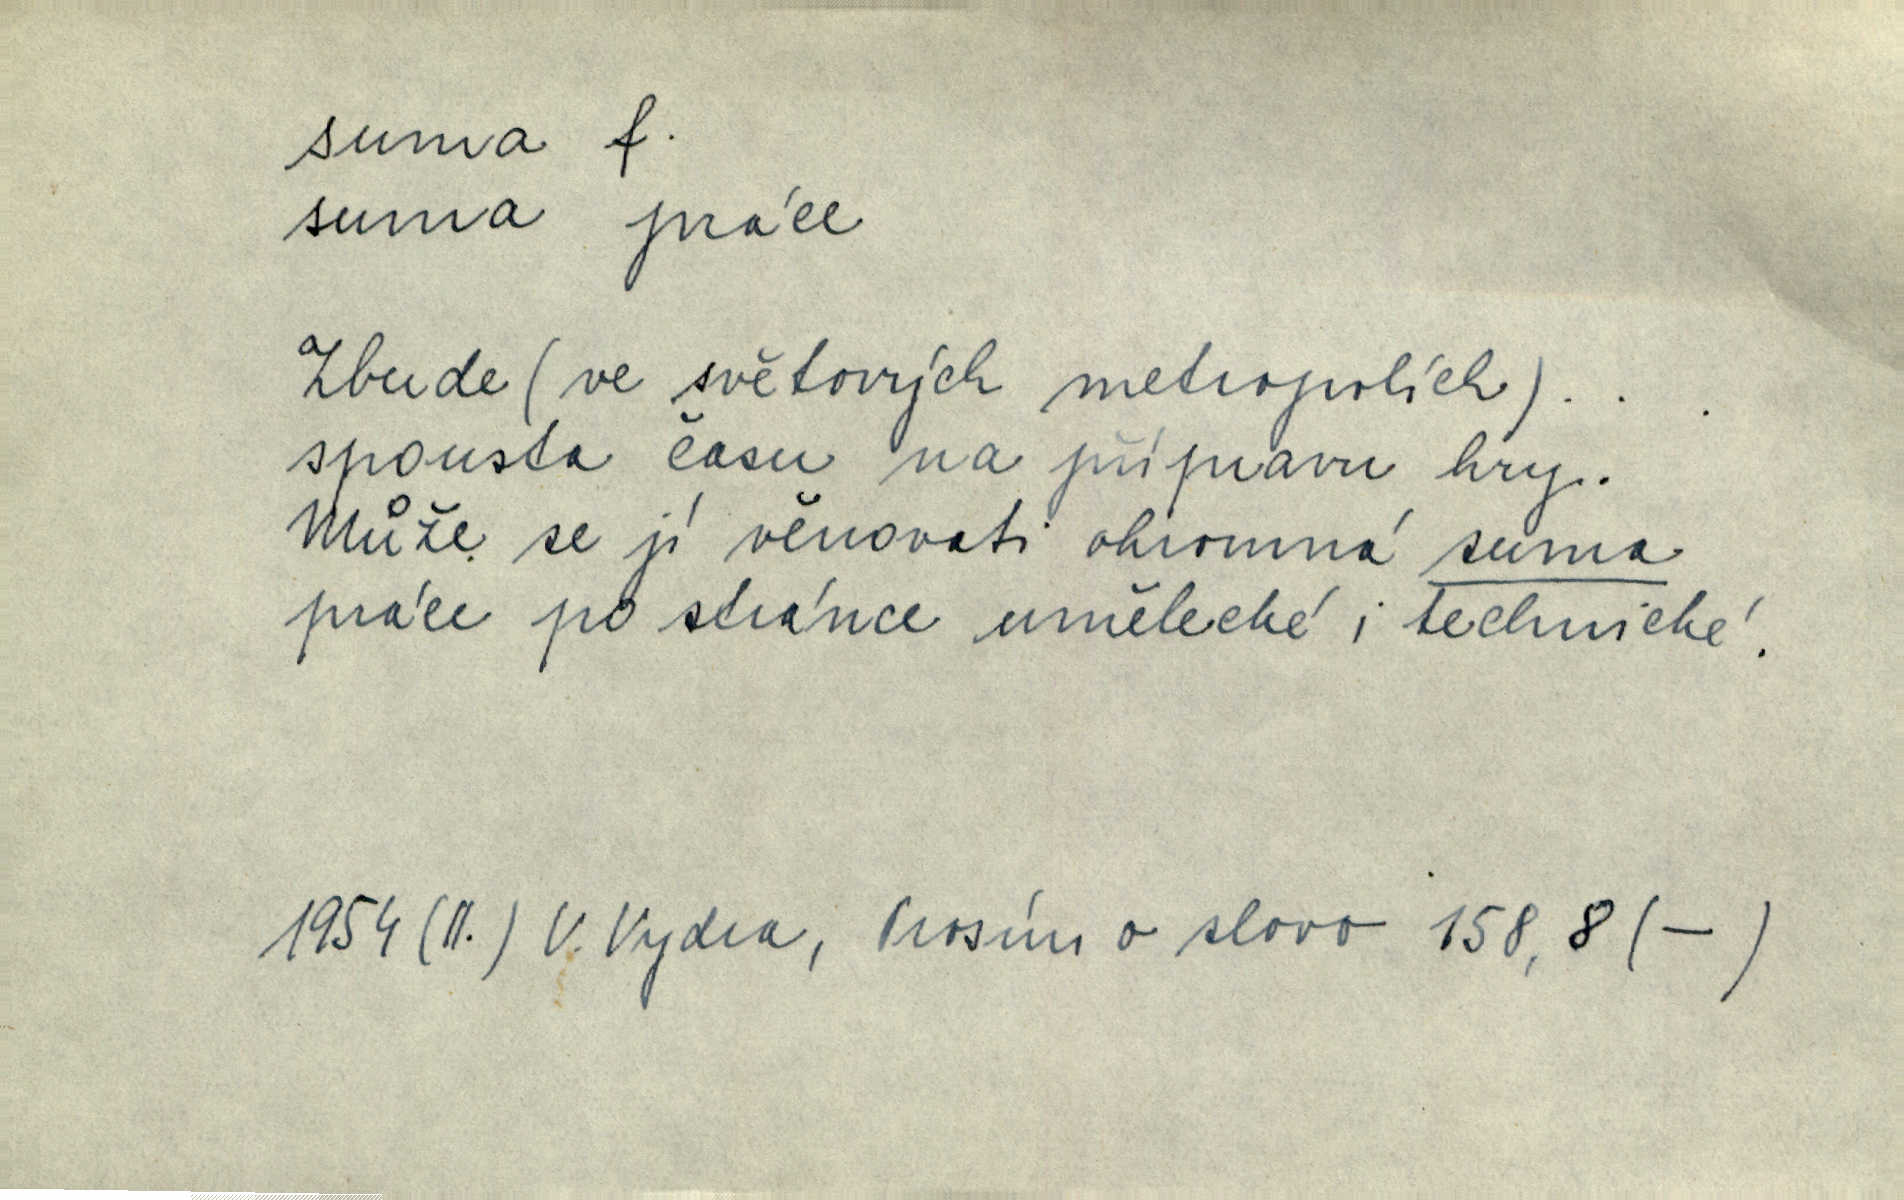 suma f.
suma práce
Zbude (ve světových metropolích) . . .
spousta času na přípravu hry.
Může se jí věnovati ohromná suma
práce po stránce umělecké i technické.
1954 (II.) V. Vydra, Prosím o slovo 158, 8 (—)